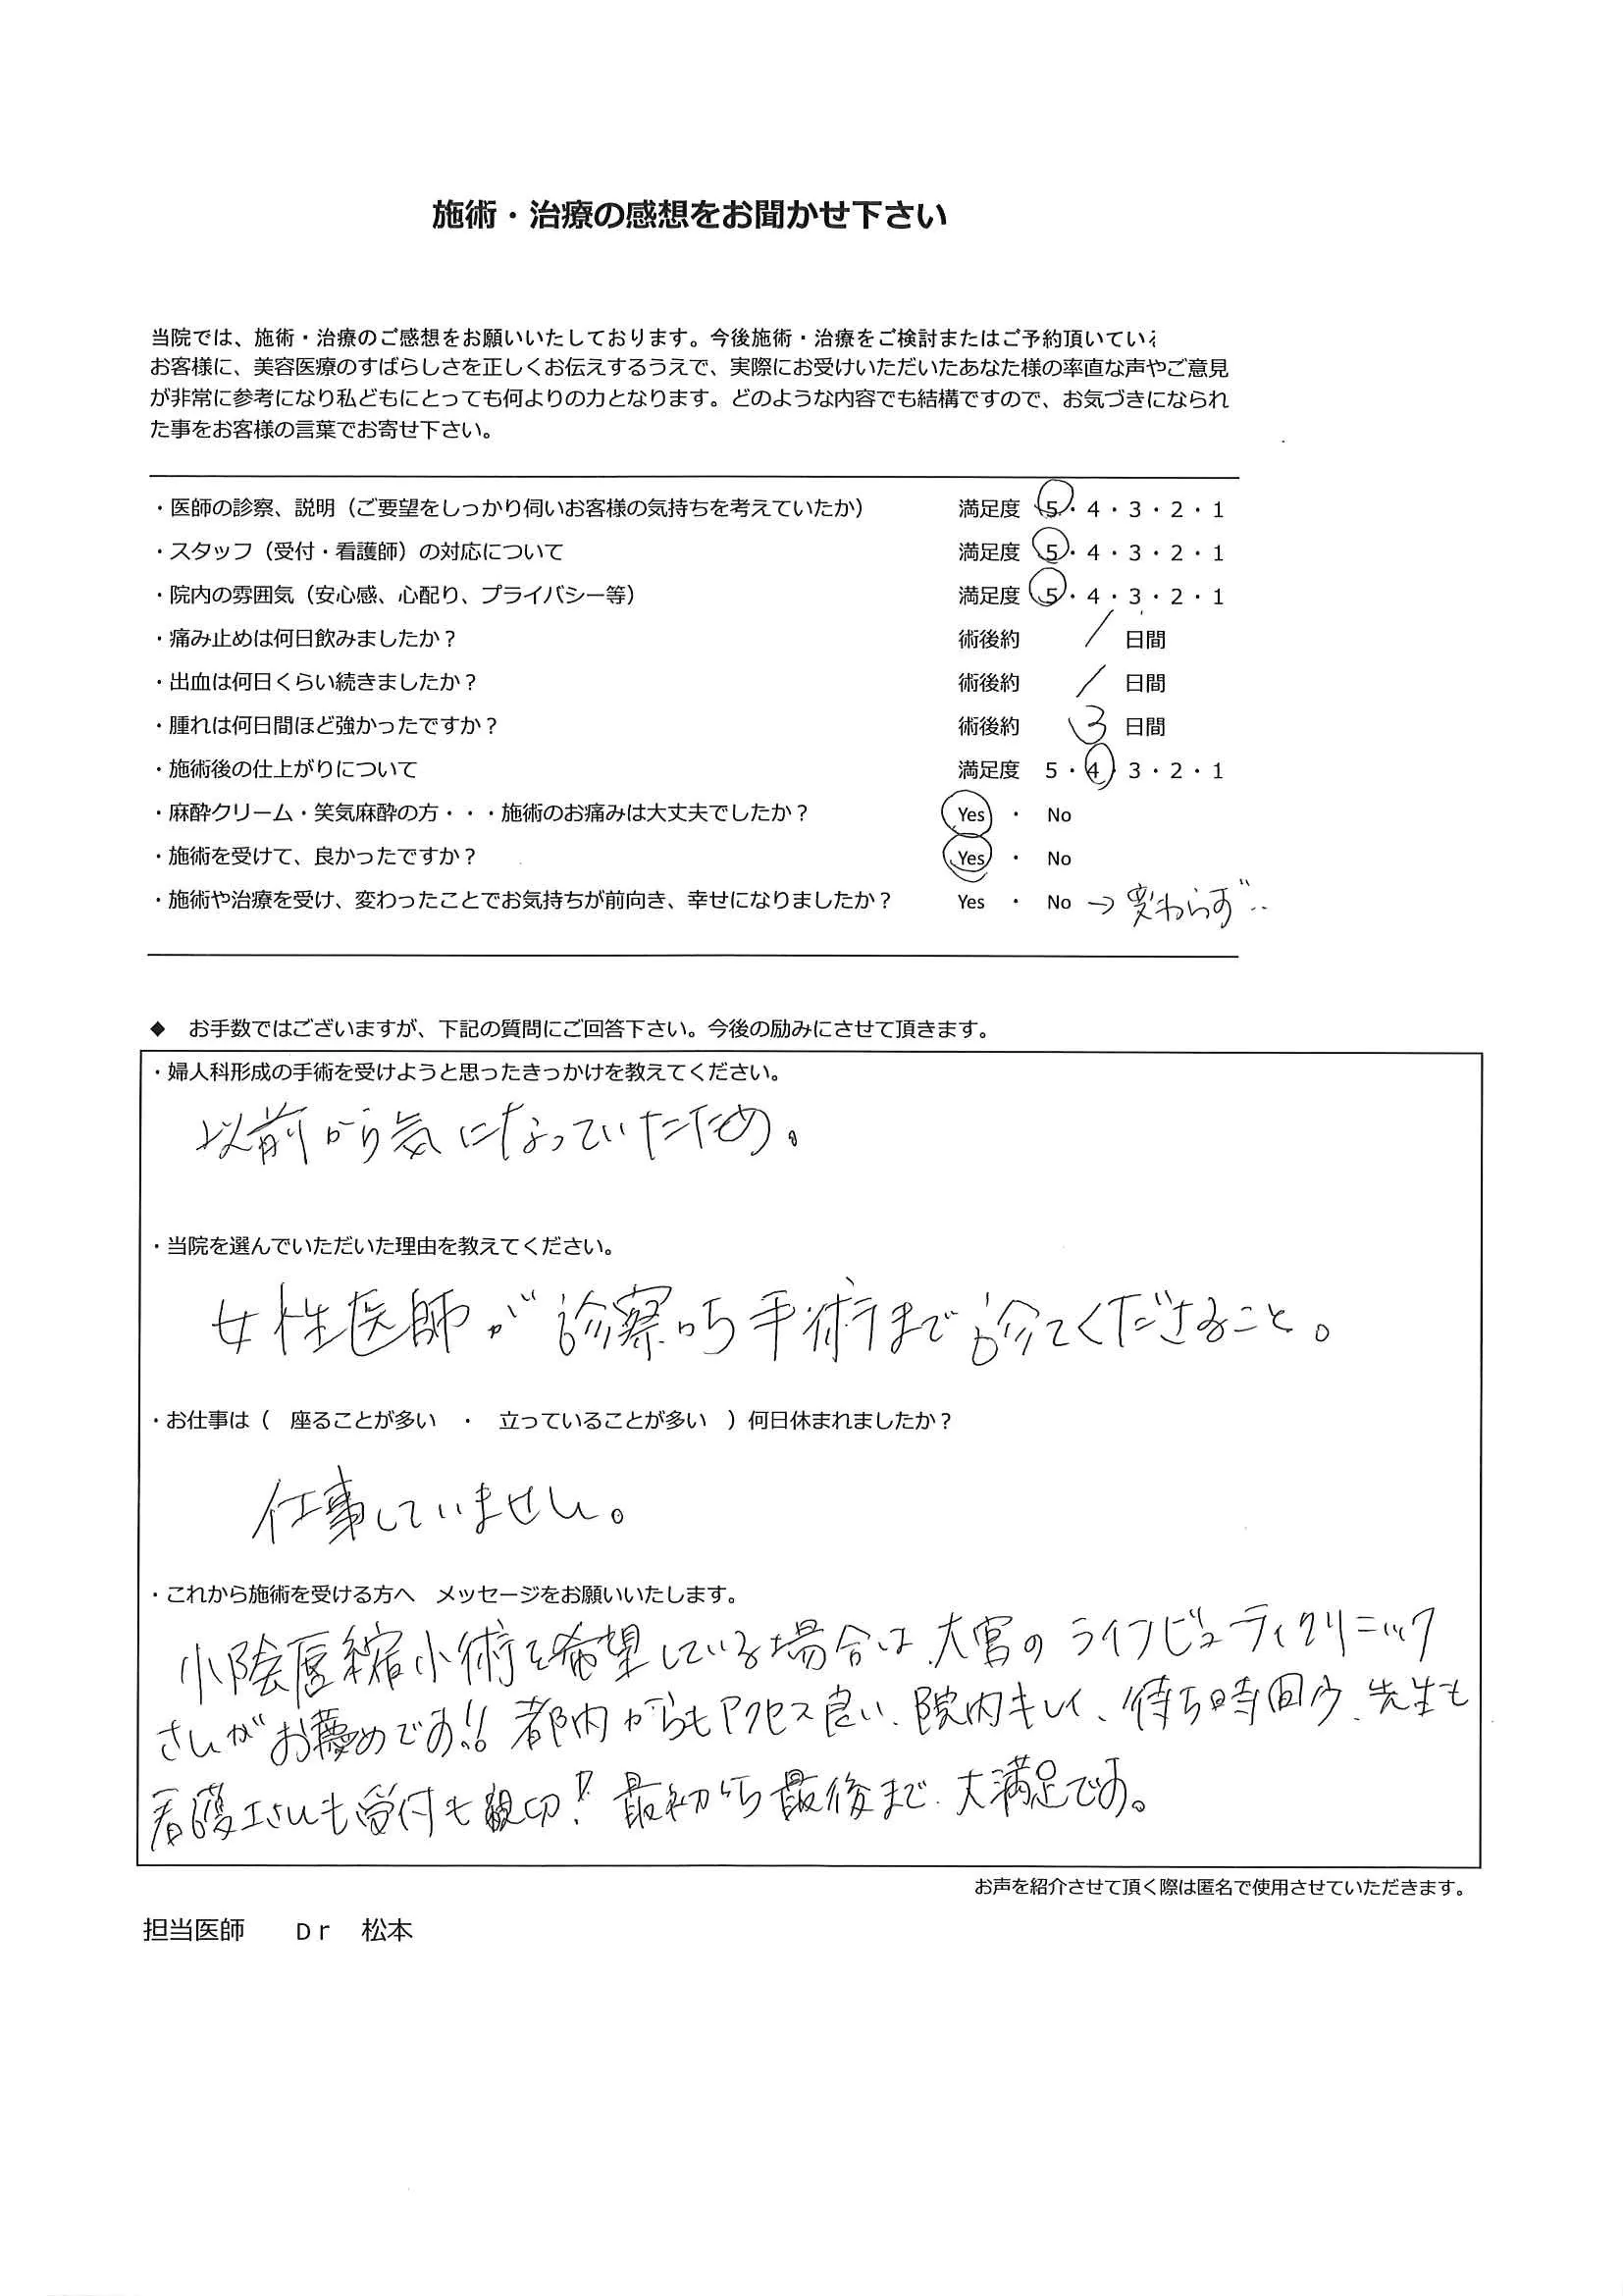 施術・治療の感想をお聞かせ下さい
当院では、施術・治療のご感想をお願いいたしております。今後施術・治療をご検討またはご予約頂いている
お客様に、美容医療のすばらしさを正しくお伝えするうえで、実際にお受けいただいたあなた様の率直な声やご意見
が非常に参考になり私どもにとっても何よりの力となります。どのような内容でも結構ですので、お気づきになられ
た事をお客様の言葉でお寄せ下さい。
・医師の診察、説明（ご要望をしっかり伺いお客様の気持ちを考えていたか） 満足度 5・4・3・2・1
・スタッフ（受付・看護師）の対応について 満足度 5・4・3・2・1
・院内の雰囲気（安心感、心配り、プライバシー等） 満足度 5・4・3・2・1
・痛み止めは何日飲みましたか？ 術後約 / 日間
・出血は何日くらい続きましたか？ 術後約 / 日間
・腫れは何日間ほど強かったですか？ 術後約 3 日間
・施術後の仕上がりについて 満足度 5・4・3・2・1
・麻酔クリーム・笑気麻酔の方・・・施術のお痛みは大丈夫でしたか？ Yes ・ No
・施術を受けて、良かったですか？ Yes ・ No
・施術や治療を受け、変わったことでお気持ちが前向き、幸せになりましたか？ Yes ・ No →変わらず‥
◆ お手数ではございますが、下記の質問にご回答下さい。今後の励みにさせて頂きます。
・婦人科形成の手術を受けようと思ったきっかけを教えてください。
以前から気になっていたため。
・当院を選んでいただいた理由を教えてください。
女性医師が診察から手術まで診てくださること。
・お仕事は（ 座ることが多い ・ 立っていることが多い ）何日休まれましたか？
仕事していません。
・これから施術を受ける方へ メッセージをお願いいたします。
小陰唇縮小術を希望している場合は、大宮のライフビューティクリニック
さんがお薦めです!! 都内からもアクセス良い、院内キレイ、待ち時間少、先生も
看護士さんも受付も親切!! 最初から最後まで、大満足です。
お声を紹介させて頂く際は匿名で使用させていただきます。
担当医師 Dr 松本